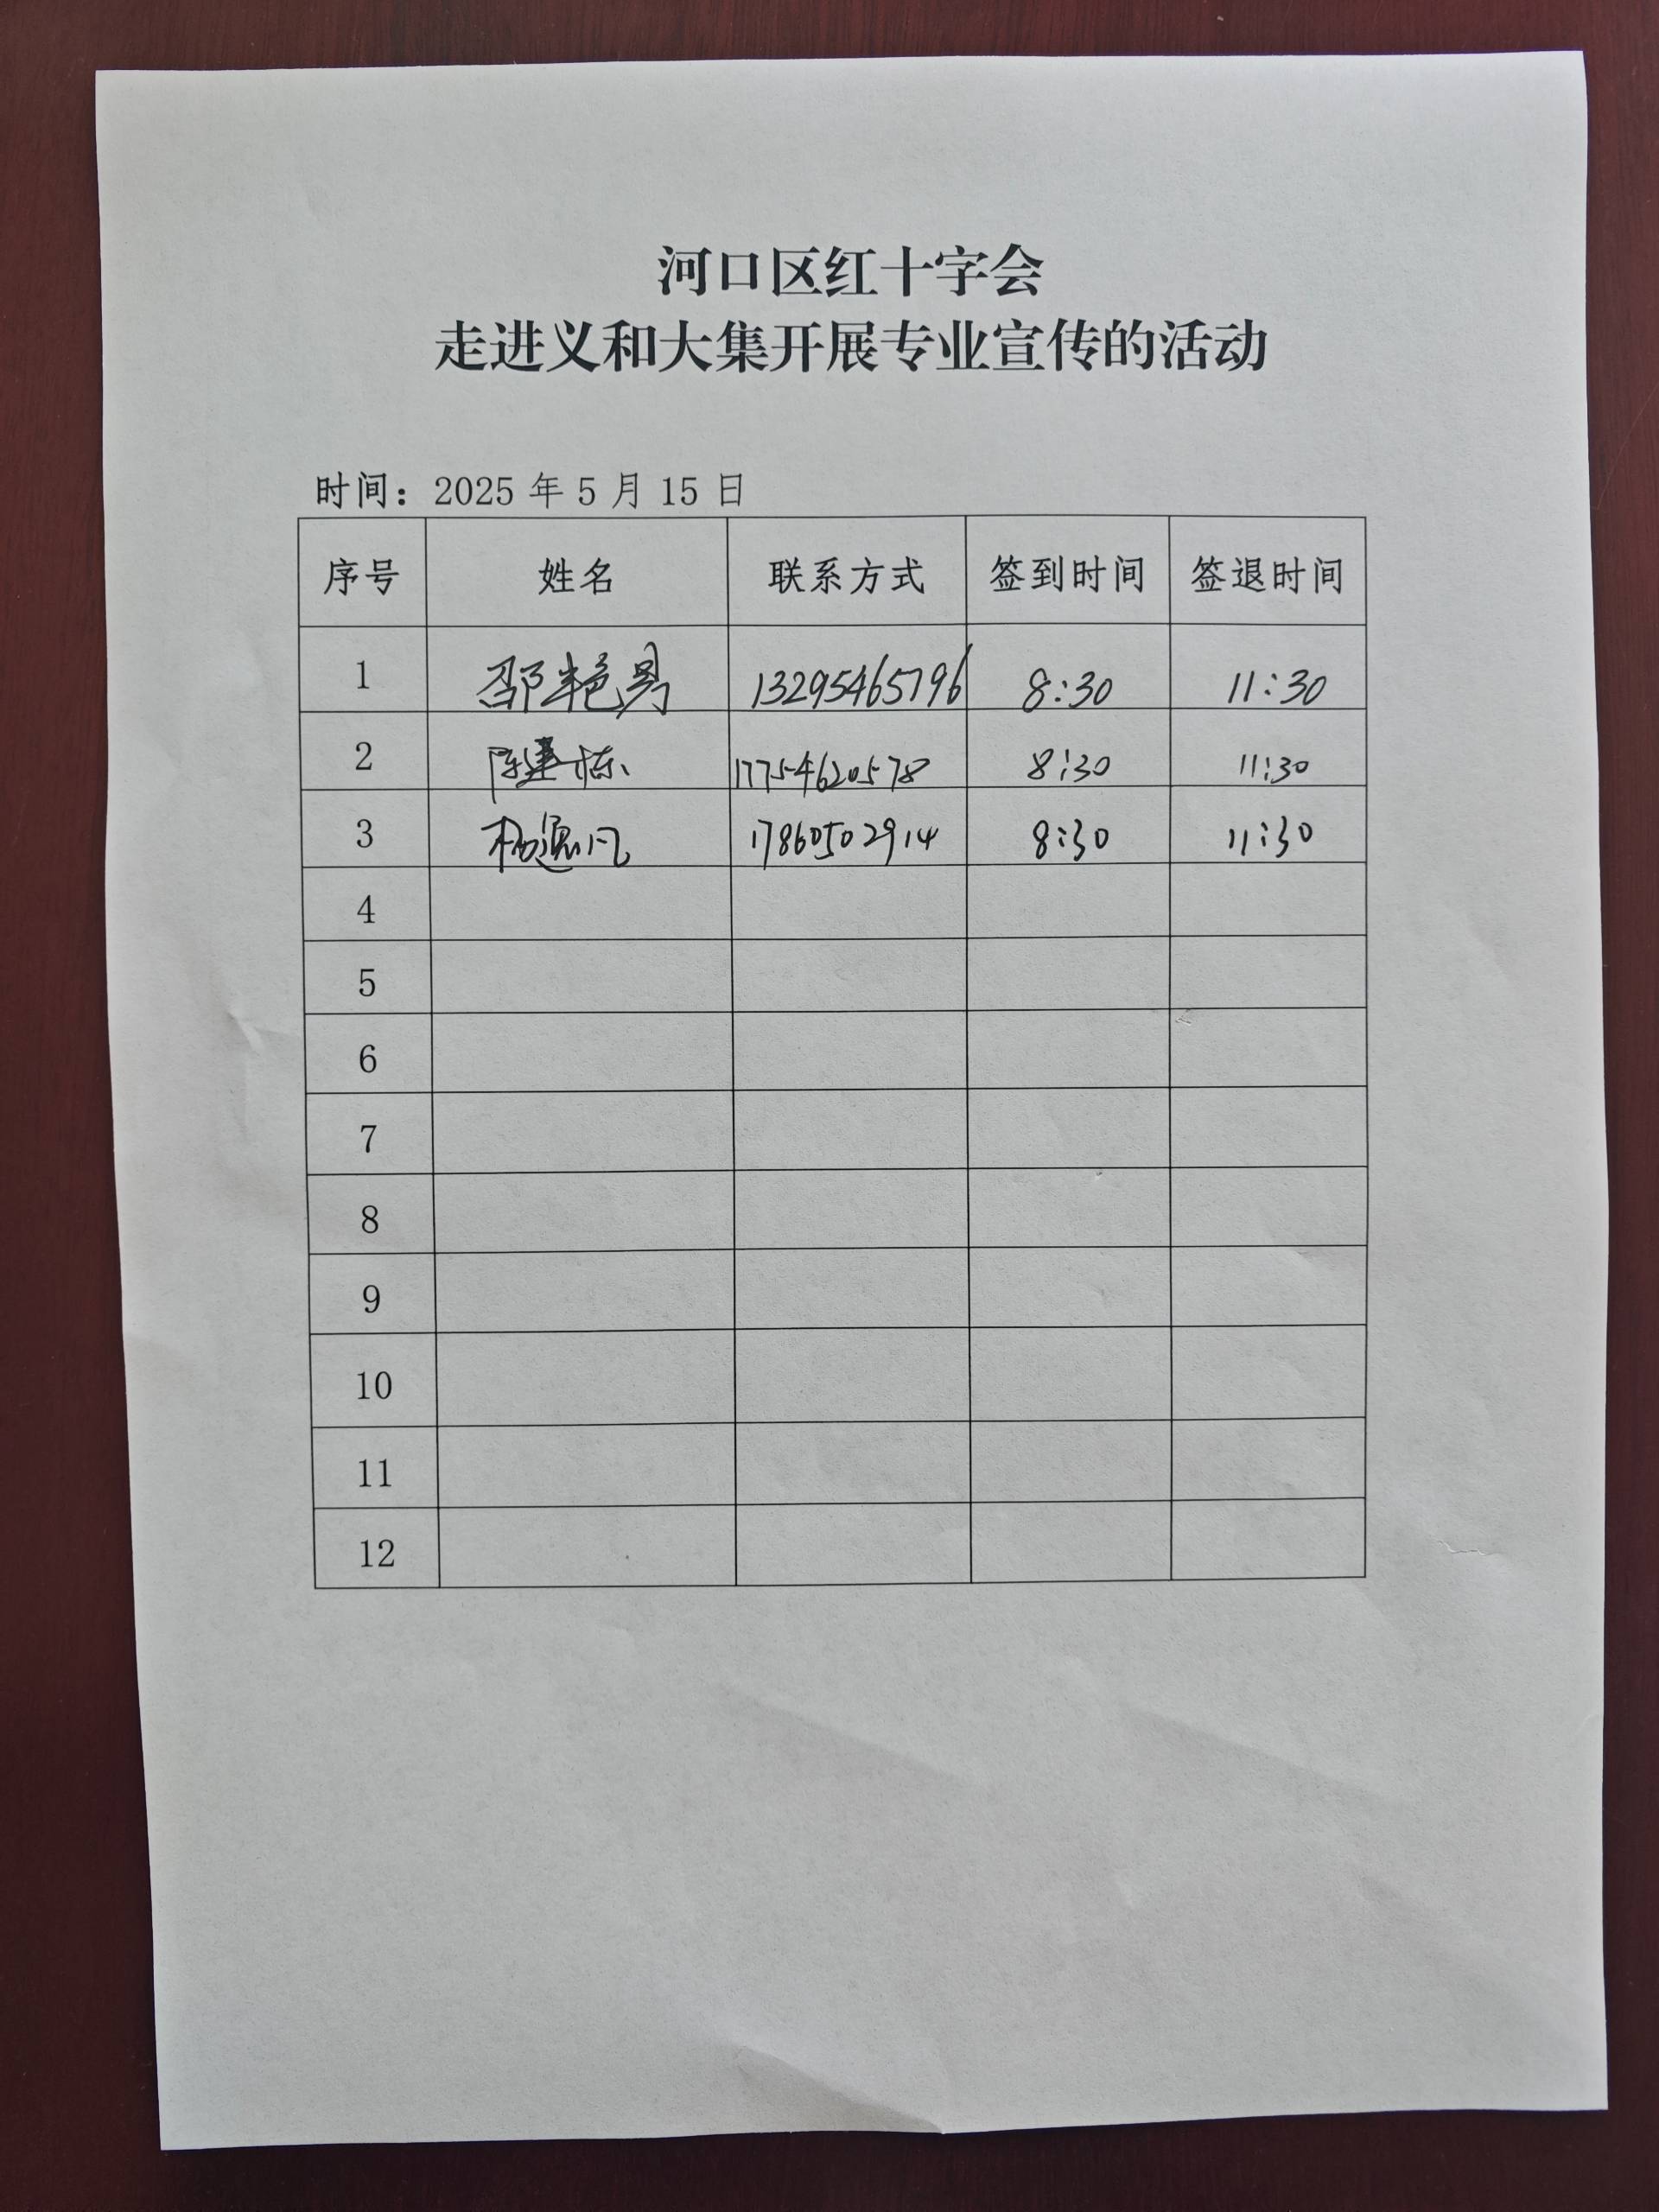 河口区红十字会
走进义和大集开展专业宣传的活动
时间：2025 年 5 月 15 日
序号 姓名 联系方式 签到时间 签退时间
1 邵艳男 13295465796 8:30 11:30
2 陈建栋 17754620578 8:30 11:30
3 杨逸凡 17860502914 8:30 11:30
4
5
6
7
8
9
10
11
12